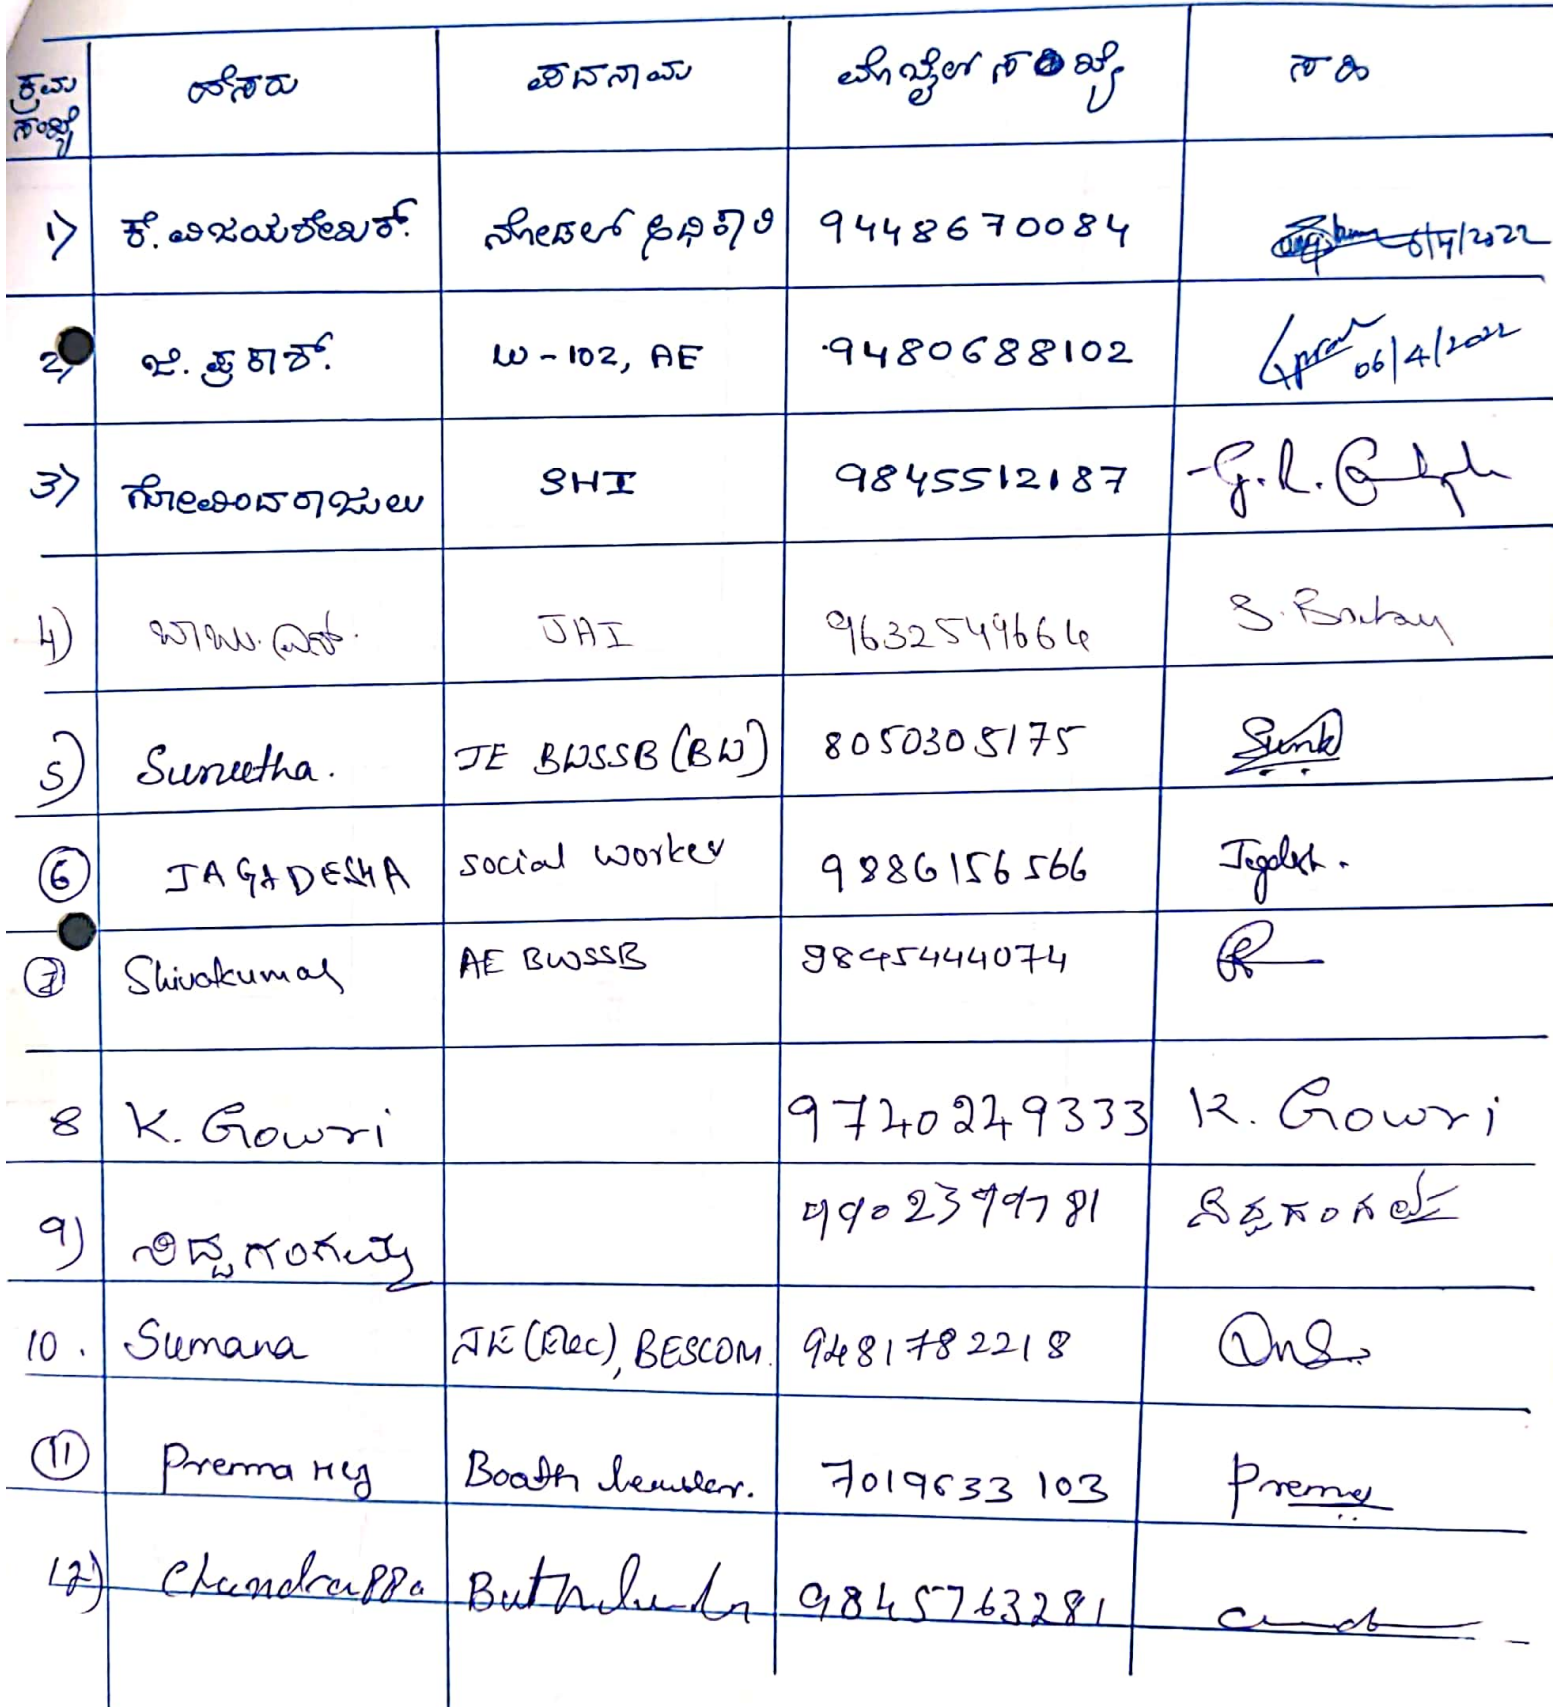 ಕ್ರಮ ಸಂಖ್ಯೆ ಹೆಸರು ಪದನಾಮ ಮೊಬೈಲ್ ಸಂಖ್ಯೆ ಸಹಿ
1) ಕೆ. ವಿಜಯಶೇಖರ್. ನೋಡಲ್ ಅಧಿಕಾರಿ 9448670084 6/4/2022
2) ಜೆ. ಪ್ರಕಾಶ್. W-102, AE 9480688102 06/4/2022
3) ಗೋವಿಂದರಾಜುಲು SHI 9845512187 G.R.
4) ಬಾಬು. ಎಸ್. JHI 9632549664 S. Babu
5) Suneetha. JE BWSSB (BW) 8050305175
6 JAGADESHA social worker 9886156566 Jagadesh.
7 Shivakumar AE BWSSB 9845444074
8 K. Gowri 97402 49333 K. Gowri
9) ಸಿದ್ದಗಂಗಮ್ಮ 9902399781 ಸಿದ್ದಗಂಗಮ್ಮ
10. Sumana JE (Elec), BESCOM. 9481782218
11 Prema Booth 7019633 103 Prema
12) Chandrappa 9845763281